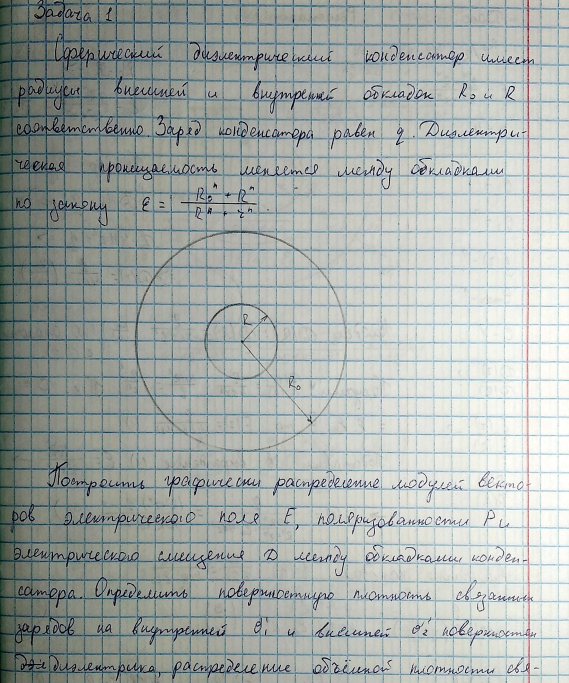 Задача 1
Сферический диэлектрический конденсатор имеет
радиусы внешней и внутренней обкладок R₀ и R
соответственно. Заряд конденсатора равен q. Диэлектри-
ческая проницаемость меняется между обкладками
по закону ε = (R₀ⁿ + Rⁿ) / (Rⁿ + rⁿ).
R
R₀
Построить графически распределение модулей векто-
ров электрического поля E, поляризованности P и
электрического смещения D между обкладками конден-
сатора. Определить поверхностную плотность связанных
зарядов на внутренней σ'₁ и внешней σ'₂ поверхностях
диэлектрика, распределение объёмной плотности свя-